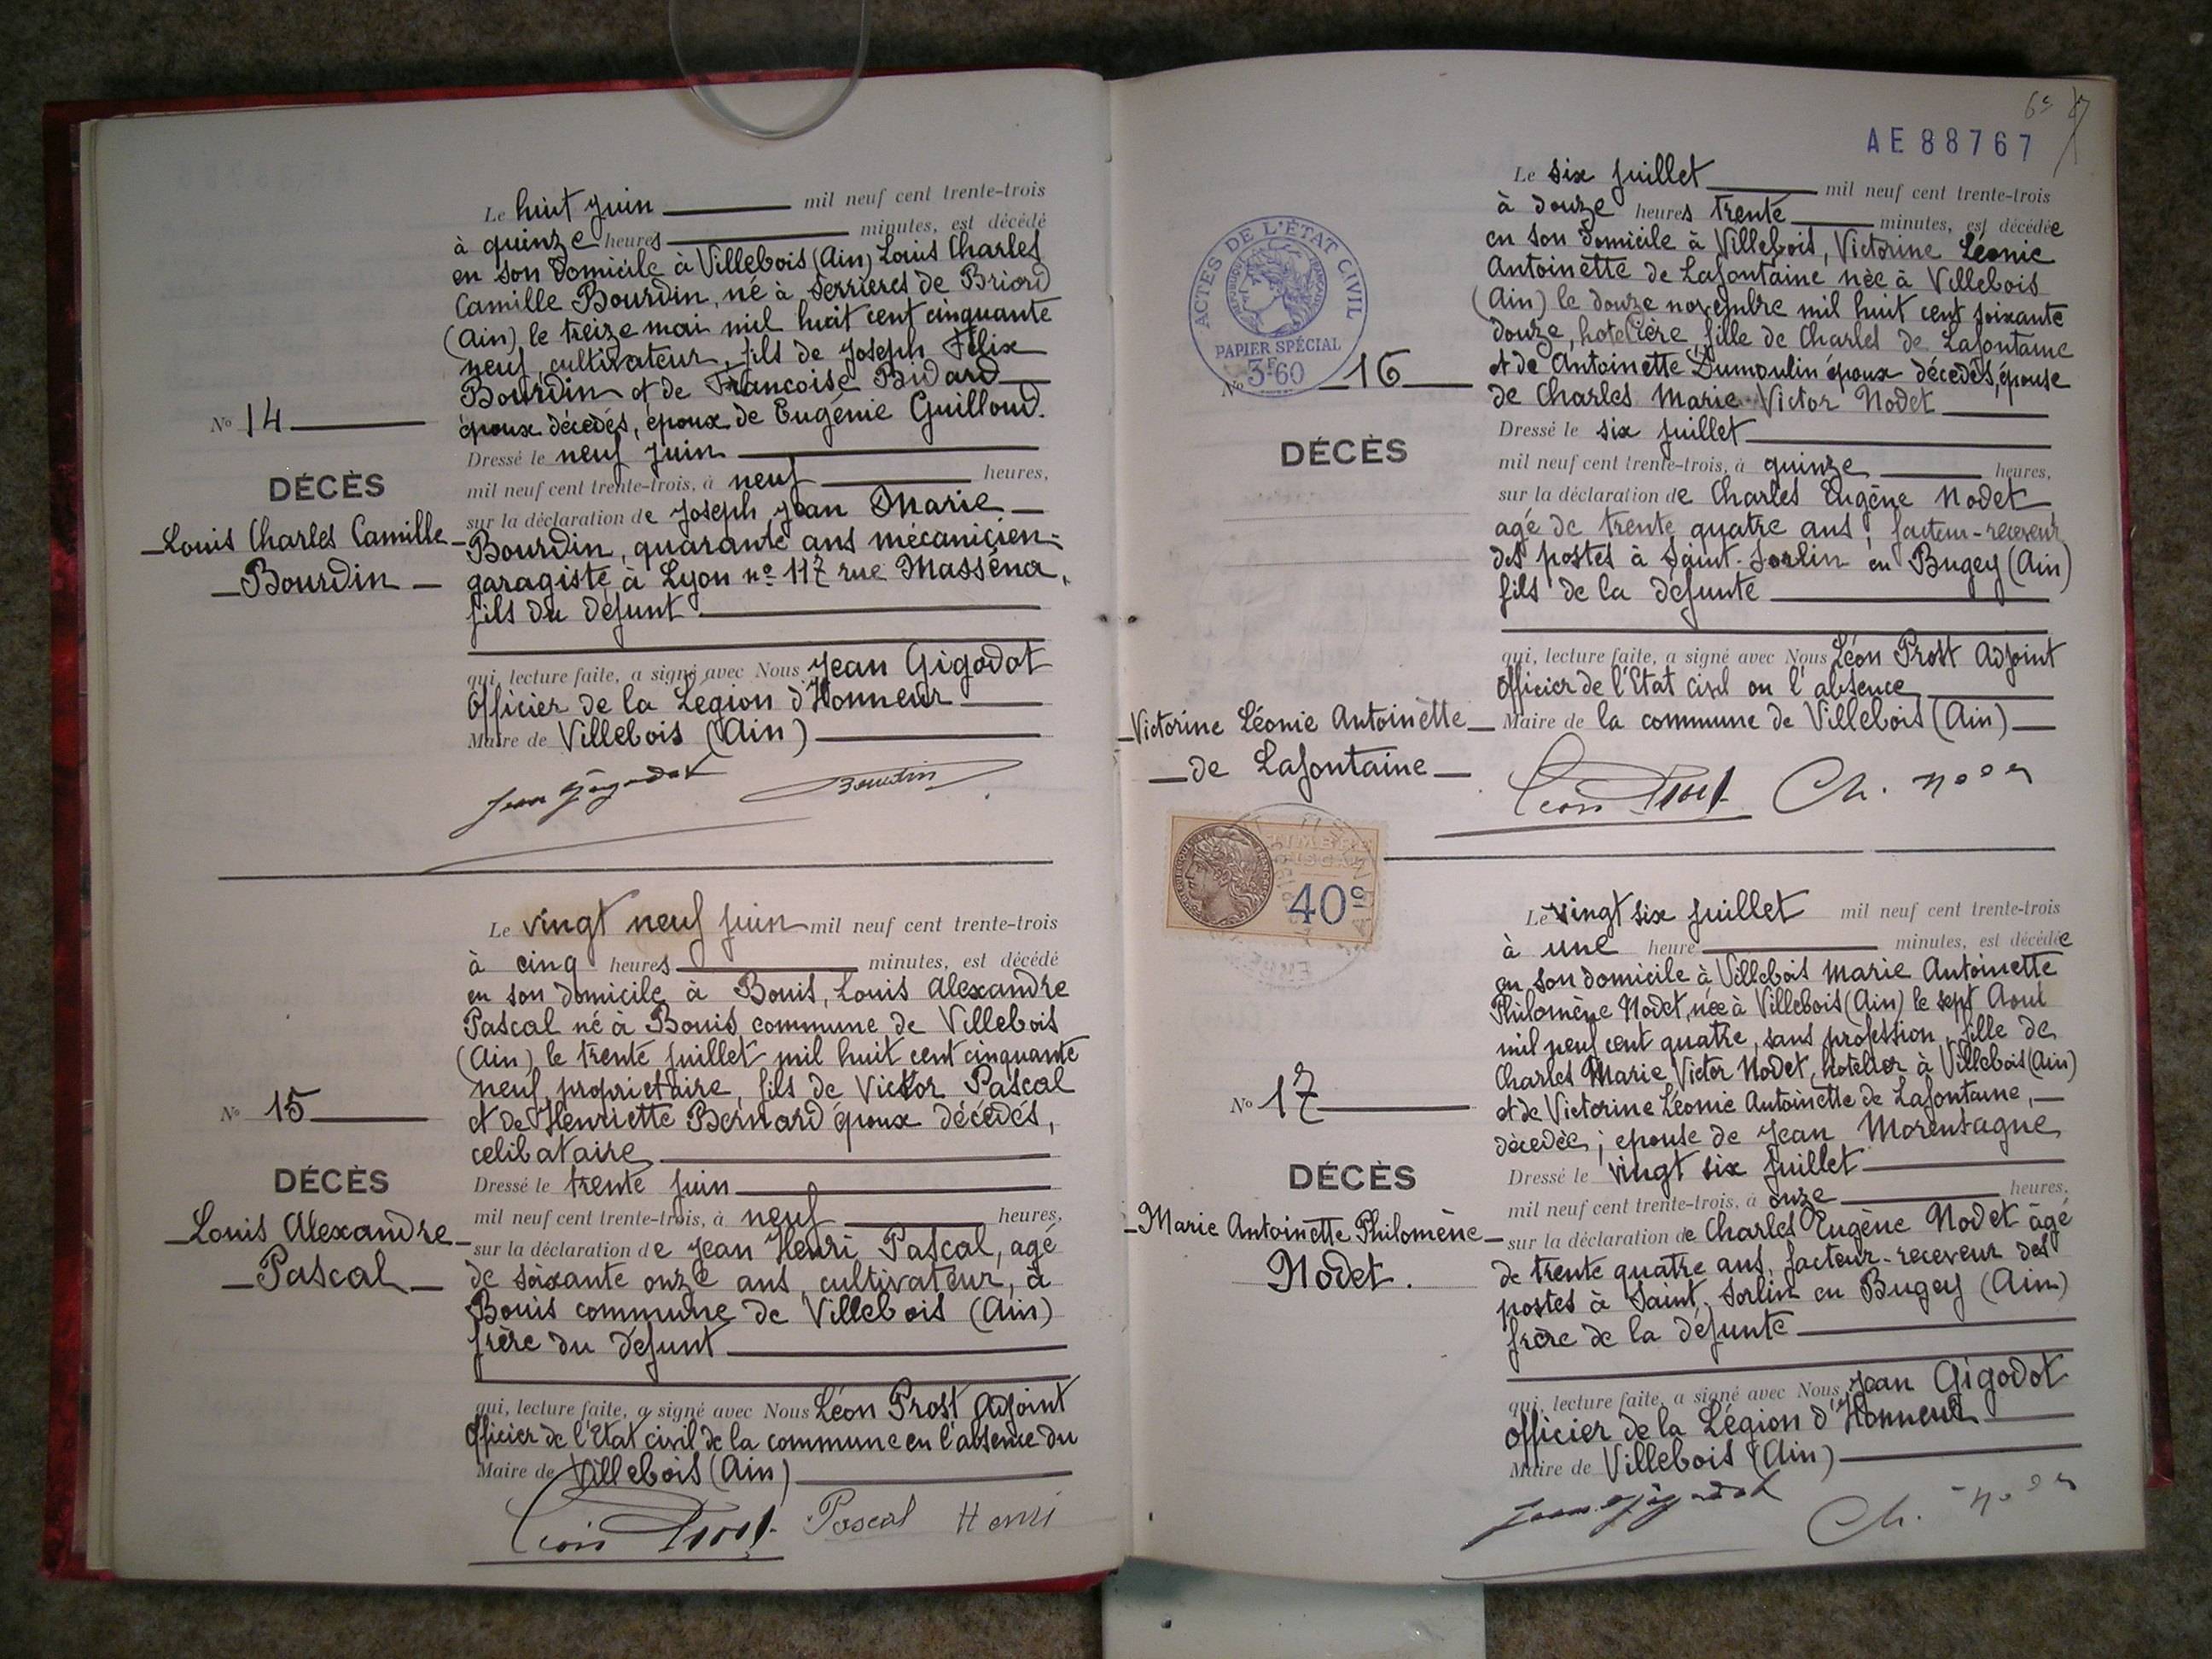 Le huit juin mil neuf cent trente-trois
à quinze heures minutes, est décédé
en son domicile à Villebois (Ain) Louis Charles
Camille Bourdin, né à Serrières de Briord
(Ain) le treize mai mil huit cent cinquante
neuf, cultivateur, fils de Joseph Félix
Bourdin et de Francoise Bidard
époux décédés, époux de Eugénie Guilloud.
Dressé le neuf juin
mil neuf cent trente-trois, à neuf heures,
sur la déclaration de Joseph Jean Marie
Bourdin, quarante ans mécanicien-
garagiste à Lyon nº 117 rue Masséna,
fils du défunt
qui, lecture faite, a signé avec Nous Jean Gigodot
Officier de la Légion d'Honneur
Maire de Villebois (Ain)
Jean Gigodot Bourdin
Nº 14
DÉCÈS
Louis Charles Camille
Bourdin
Le vingt neuf juin mil neuf cent trente-trois
à cinq heures minutes, est décédé
en son domicile à Bouis, Louis Alexandre
Pascal né à Bouis commune de Villebois
(Ain) le trente juillet mil huit cent cinquante
neuf, proprietaire, fils de Victor Pascal
et de Henriette Bernard époux décédés,
celibataire
Dressé le trente juin
mil neuf cent trente-trois, à neuf heures,
sur la déclaration de Jean Henri Pascal, agé
de soixante onze ans, cultivateur, à
Bouis commune de Villebois (Ain)
frère du défunt
qui, lecture faite, a signé avec Nous Léon Prost Adjoint
Officier de l'Etat civil de la commune en l'absence du
Maire de Villebois (Ain)
Léon Prost Pascal Henri
Nº 15
DÉCÈS
Louis Alexandre
Pascal
AE 88767
Le six juillet mil neuf cent trente-trois
à douze heures trente minutes, est décédée
en son domicile à Villebois, Victorine Léonie
Antoinette de Lafontaine née à Villebois
(Ain) le douze novembre mil huit cent soixante
douze, hotelière, fille de Charles de Lafontaine
et de Antoinette Dumoulin époux décedés, épouse
de Charles Marie Victor Nodet
Dressé le six juillet
mil neuf cent trente-trois, à quinze heures,
sur la déclaration de Charles Eugène Nodet
agé de trente quatre ans, facteur-receveur
des postes à Saint-Sorlin en Bugey (Ain)
fils de la défunte
qui, lecture faite, a signé avec Nous Léon Prost Adjoint
Officier de l'Etat civil en l'absence
Maire de la commune de Villebois (Ain)
Léon Prost Ch. Nodet
ACTES DE L'ÉTAT CIVIL
RÉPUBLIQUE FRANÇAISE
PAPIER SPÉCIAL
3F60
Nº 16
DÉCÈS
Victorine Léonie Antoinette
de Lafontaine
TIMBRE
FISCAL
40c
Le vingt six juillet mil neuf cent trente-trois
à une heure minutes, est décédée
en son domicile à Villebois Marie Antoinette
Philomène Nodet, née à Villebois (Ain) le sept Aout
mil neuf cent quatre, sans profession, fille de
Charles Marie Victor Nodet, hotelier à Villebois (Ain)
et de Victorine Léonie Antoinette de Lafontaine,
décedée ; epouse de Jean Morentagne
Dressé le vingt six juillet
mil neuf cent trente-trois, à onze heures,
sur la déclaration de Charles Eugène Nodet âgé
de trente quatre ans, facteur-receveur des
postes à Saint-Sorlin en Bugey (Ain)
frère de la défunte
qui, lecture faite, a signé avec Nous Jean Gigodot
officier de la Légion d'Honneur
Maire de Villebois (Ain)
Jean Gigodot Ch. Nodet
Nº 17
DÉCÈS
Marie Antoinette Philomène
Nodet.